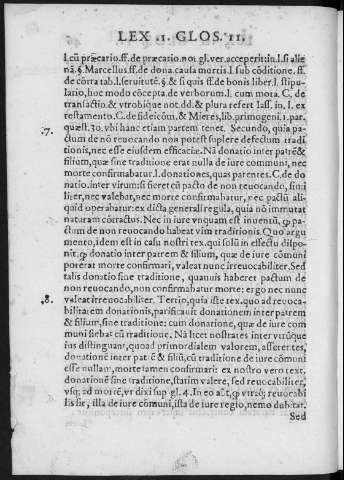 LEX .1. GLOS. 11.
l.cũ præcario.ff. de præcario.not gl.ver.acceperit:in l.si alie
nã.§. Marcellus.ff.de dona.causa mortis.l.sub cõditione.ff.
de cõrra tab.l.seruitutē.§ & si quis.ff.de bonis liber.l.stipu-
lario, hoc modo cõcepta.de verborum.l.cum mota.C. de
transactio.& vtrobique not.dd.& plura refert Iass. in. l. ex
testamento.C. de fideicõm, & Mieres, lib.primogeni.1.par.
.7. quæst.30. vbi hanc etiam partem tenet. Secundo, quia pa-
ctum de nõ reuocando non potest supplere defectum tradi
tionis, nec esse eiusdem efficaciæ. Nã donatio inter patrē &
filium, quæ sine traditione erat nulla de iure communi, nec
morte confirmabatur.l.donationes, quas parentes.C.de do
natio.inter virum: si fieret cũ pacto de non reuocando, simi
liter, nec valebat, nec morte confirmabatur, nec pactũ ali-
quid operabatur: ex dicta generali regula, quia nõ immutat
naturam cõtractus. Nec in iure vnquam est inuentũ, q̃ pa-
ctum de non reuocando habeat vim traditionis. Quo argu
mento, idem est in casu nostri tex. qui solũ in effectu dispo-
nit, q̃ donatio inter patrem & filium, quæ de iure cõmuni
poterat morte confirmari, valeat nunc irreuocabiliter. Sed
talis donatio sine traditione, quamuis haberet pactum de
non reuocando, non confirmabatur morte: ergo nec nunc
.8. valeat irreuocabiliter. Tertio, quia iste tex. quo ad reuoca-
bilitatem donationis, parificauit donationem inter patrem
& filium, sine traditione: cum donatione, quæ de iure com
muni fiebat cũ traditione. Nã licet nostrates inter vtrũque
ius distinguant, quoad primordialem valorem, asserentes,
donationē inter patrē & filiũ, cũ traditione de iure cõmuni
esse nullam, morte tamen confirmari: ex nostro vero text.
donationē sine traditione, statim valere, sed reuocabiliter,
vsq; ad mortē, vt dixi sup gl.4. In eo aũt, q̃ vtraq; reuocabi
lis sit, illa de iure cõmuni, illa de iure regio, nemo dubitat.
Sed